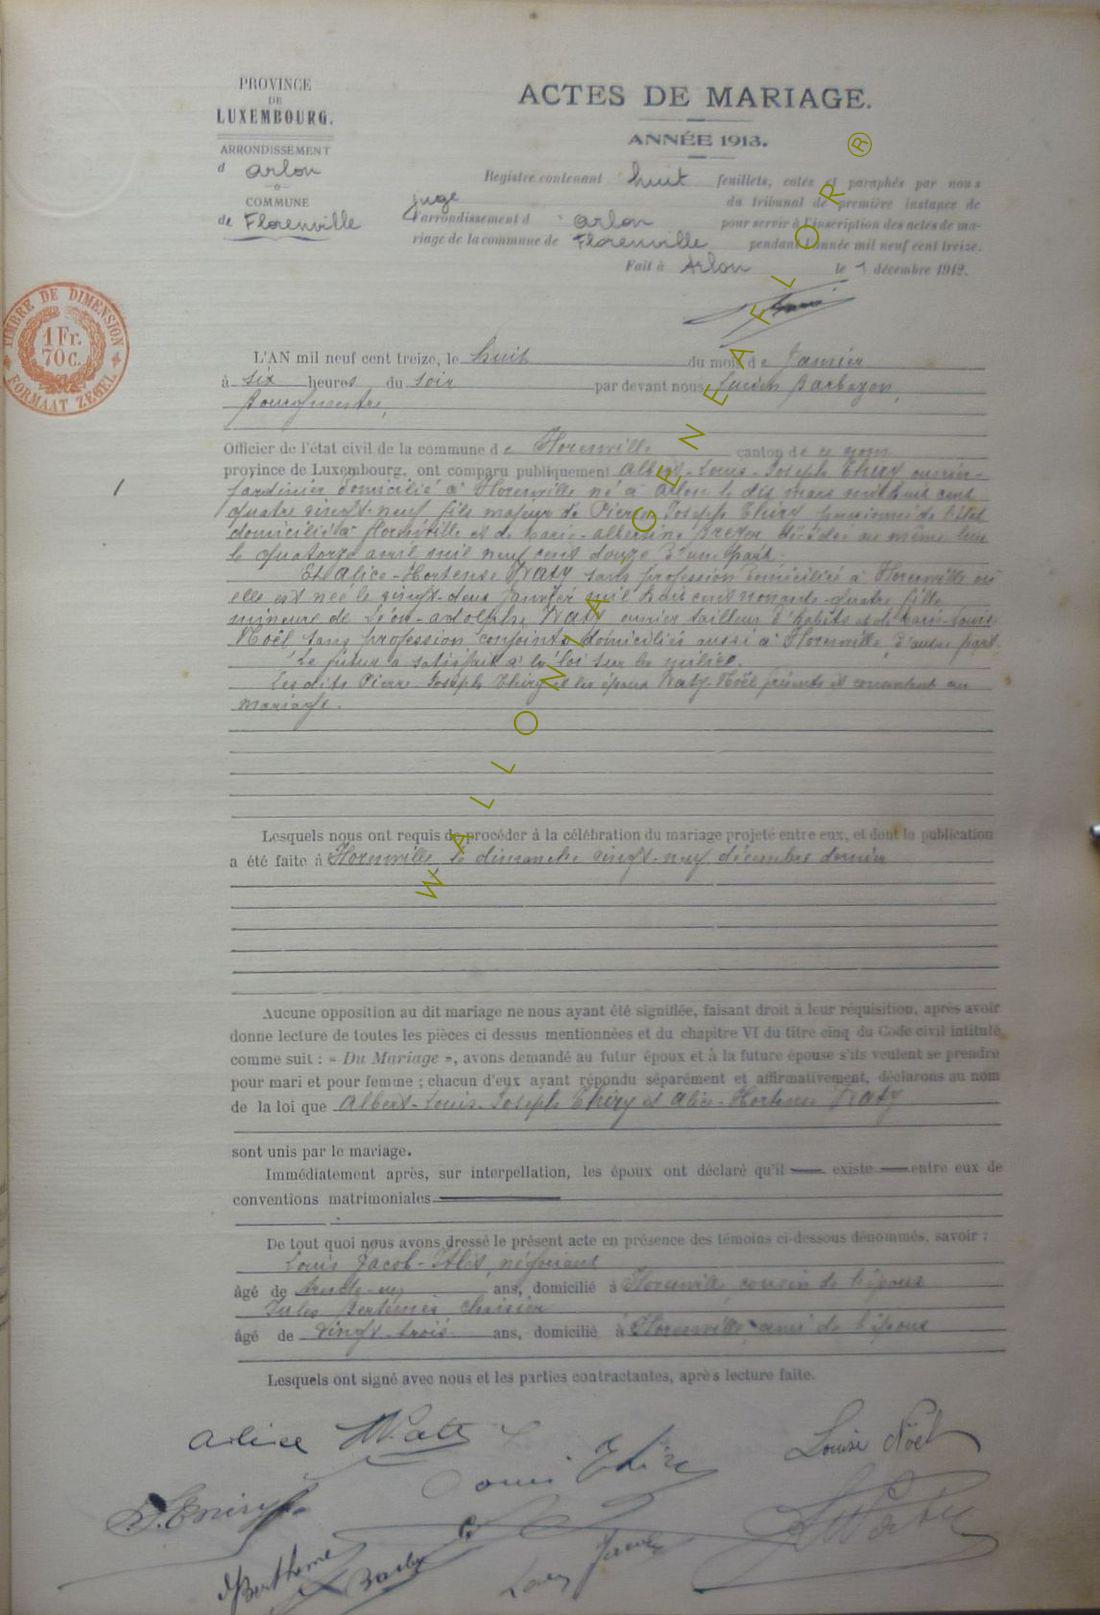 PROVINCE
DE
LUXEMBOURG.
ARRONDISSEMENT
d' Arlon
COMMUNE
de Florenville
ACTES DE MARIAGE.
ANNÉE 1913.
Registre contenant huit feuillets, cotés et paraphés par nous
juge du tribunal de première instance de
l'arrondissement d' Arlon pour servir à l'inscription des actes de ma-
riage de la commune de Florenville pendant l'année mil neuf cent treize.
Fait à Arlon le 1 décembre 1912.
TIMBRE DE DIMENSION
1 Fr.
70 c.
FORMAAT ZEGEL
1
L'AN mil neuf cent treize, le huit du mois de Janvier
à six heures du soir par devant nous Lucien Barbazon,
Bourgmestre,
Officier de l'état civil de la commune de Florenville canton de ce nom
province de Luxembourg, ont comparu publiquement Albert-Louis-Joseph Thiry ouvrier-
jardinier domicilié à Florenville né à Arlon le dix mars mil huit cent
quatre vingt-neuf fils majeur de Pierre Joseph Thiry pensionné de l'état
domicilié à Florenville et de Marie-Albertine décédée au même lieu
le quatorze avril mil neuf cent douze d'une part.
Et Alice-Hortense Waty sans profession domiciliée à Florenville où
elle est née le vingt-deux Janvier mil huit cent nonante-quatre fille
mineure de Léon-Adolphe Waty ouvrier tailleur d'habits et de Marie-Louise
Noël sans profession conjoints domiciliés aussi à Florenville, d'autre part.
Le futur a satisfait à la loi sur la milice.
Les dits Pierre-Joseph Thiry et les époux Waty-Noël présents et consentant au
mariage.
Lesquels nous ont requis de procéder à la célébration du mariage projeté entre eux, et dont la publication
a été faite à Florenville le dimanche vingt-neuf décembre dernier
Aucune opposition au dit mariage ne nous ayant été signifiée, faisant droit à leur réquisition, après avoir
donne lecture de toutes les pièces ci dessus mentionnées et du chapitre VI du titre cinq du Code civil intitulé
comme suit : « Du Mariage », avons demandé au futur époux et à la future épouse s'ils veulent se prendre
pour mari et pour femme ; chacun d'eux ayant répondu séparément et affirmativement, déclarons au nom
de la loi que Albert-Louis-Joseph Thiry et Alice-Hortense Waty
sont unis par le mariage.
Immédiatement après, sur interpellation, les époux ont déclaré qu'il existe entre eux de
conventions matrimoniales
De tout quoi nous avons dressé le présent acte en présence des témoins ci-dessous dénommés, savoir :
Louis Jacob- négociant
âgé de trente-un ans, domicilié à Florenville, cousin de l'époux
Jules chaisier
âgé de vingt-trois ans, domicilié à Florenville ami de l'époux
Lesquels ont signé avec nous et les parties contractantes, après lecture faite.
Alice Watt
Louis Thiry
Louise Noël
Louis Jacob
WALLONIA GENEAFLOR ®